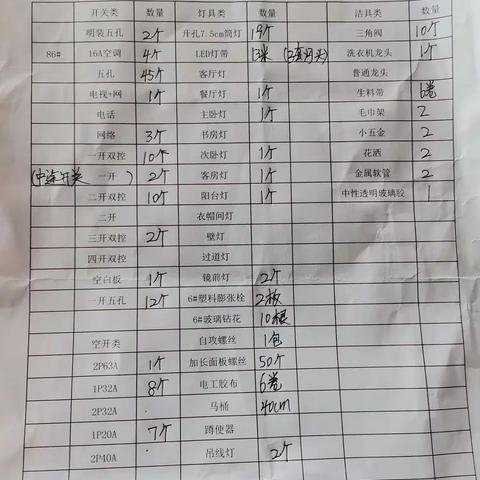 开关类 数量 灯具类 数量 洁具类 数量
明装五孔 2个 开孔7.5cm筒灯 19个 三角阀 10个
86# 16A空调 4个 LED灯带 13米 洗衣机龙头 1个
五孔 45个 客厅灯 普通龙头
电视+网 1个 餐厅灯 1个 生料带 6卷
电话 主卧灯 1个 毛巾架 2
网络 3个 书房灯 小五金 2
一开双控 10个 次卧灯 1个 花洒 2
一开 2个 客房灯 1个 金属软管 2
二开双控 10个 阳台灯 1个 中性透明玻璃胶 1
二开 衣帽间灯
三开双控 2个 壁灯
四开双控 过道灯
空白板 1个 镜前灯 2个
一开五孔 12个 6#塑料膨张栓 2板
6#玻璃钻花 10根
自攻螺丝 1包
空开类
2P63A 1个 加长面板螺丝 50个
1P32A 8个 电工胶布 6卷
2P32A 马桶 40cm
1P20A 7个 蹲便器
2P40A 吊线灯 2个